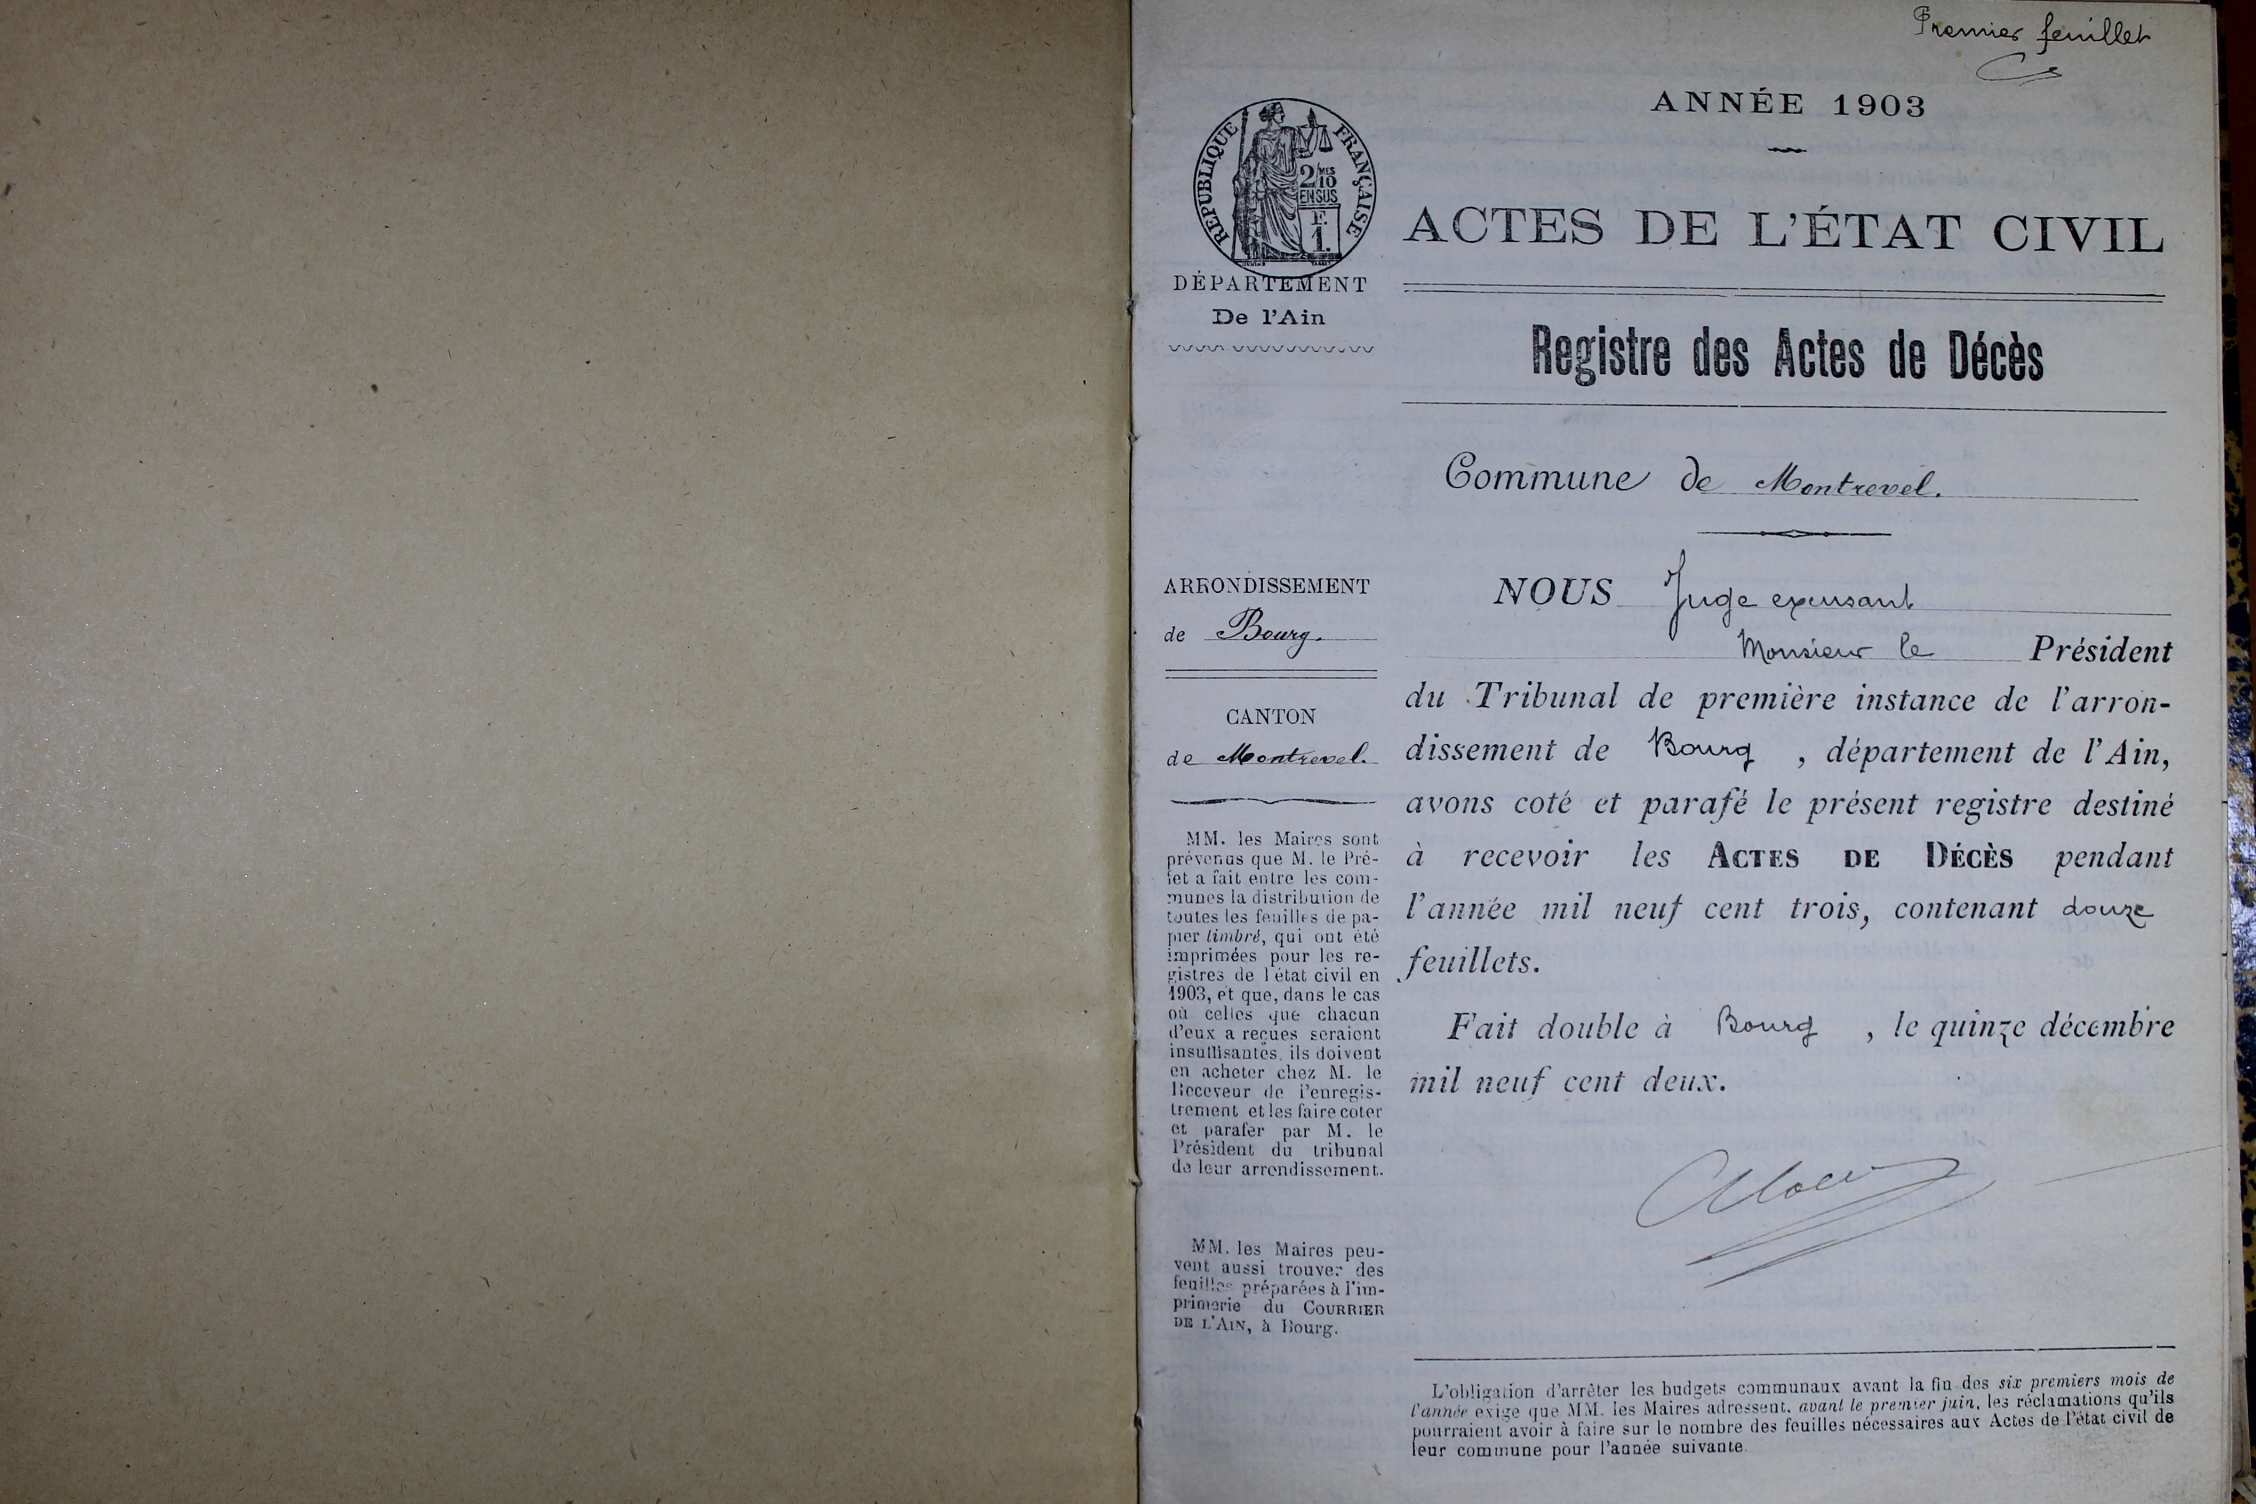 Premier feuillet
ANNÉE 1903
RÉPUBLIQUE FRANÇAISE
2/10 MES
EN SUS
F.
1.
ACTES DE L'ÉTAT CIVIL
DÉPARTEMENT
De l'Ain
Registre des Actes de Décès
Commune de Montrevel.
ARRONDISSEMENT
de Bourg.
CANTON
de Montrevel.
MM. les Maires sont
prévenus que M. le Pré-
fet a fait entre les com-
munes la distribution de
toutes les feuilles de pa-
pier timbré, qui ont été
imprimées pour les re-
gistres de l'état civil en
1903, et que, dans le cas
où celles que chacun
d'eux a reçues seraient
insuffisantes, ils doivent
en acheter chez M. le
Receveur de l'enregis-
trement et les faire coter
et parafer par M. le
Président du tribunal
de leur arrondissement.
MM. les Maires peu-
vent aussi trouver des
feuilles préparées à l'im-
primerie du COURRIER
DE L'AIN, à Bourg.
NOUS Juge excusant
Monsieur le Président
du Tribunal de première instance de l'arron-
dissement de Bourg, département de l'Ain,
avons coté et parafé le présent registre destiné
à recevoir les ACTES DE DÉCÈS pendant
l'année mil neuf cent trois, contenant douze
feuillets.
Fait double à Bourg, le quinze décembre
mil neuf cent deux.
L'obligation d'arrêter les budgets communaux avant la fin des six premiers mois de
l'année exige que MM. les Maires adressent, avant le premier juin, les réclamations qu'ils
pourraient avoir à faire sur le nombre des feuilles nécessaires aux Actes de l'état civil de
leur commune pour l'année suivante.